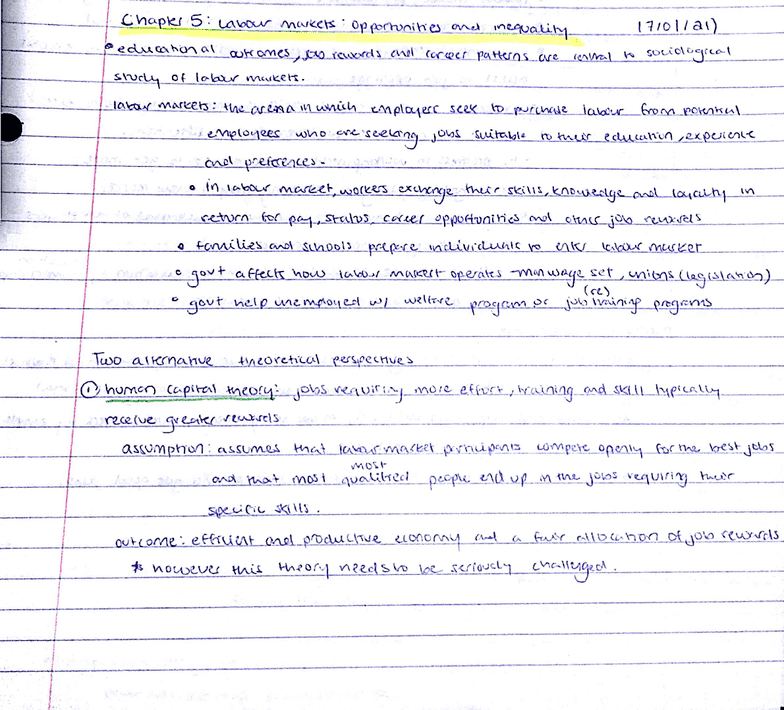 Chapter 5: Labour markets: opportunities and inequality (17/01/21)
• educational outcomes, job rewards and career patterns are central to sociological
study of labour markets.
labour markets: the arena in which employers seek to purchase labour from potential
employees who are seeking jobs suitable to their education, experience
and preferences.
• in labour market, workers exchange their skills, knowledge and loyalty in
return for pay, status, career opportunities and other job rewards
• families and schools prepare individuals to enter labour market
• govt affects how labour market operates - min wage set, unions (legislation)
• govt help unemployed w/ welfare program or job (re) training programs
Two alternative theoretical perspectives
① human capital theory: jobs requiring more effort, training and skill typically
receive greater rewards
assumption: assumes that labour market participants compete openly for the best jobs
and that most most qualified people end up in the jobs requiring their
specific skills.
outcome: efficient and productive economy and a fair allocation of job rewards
* however this theory needs to be seriously challenged.